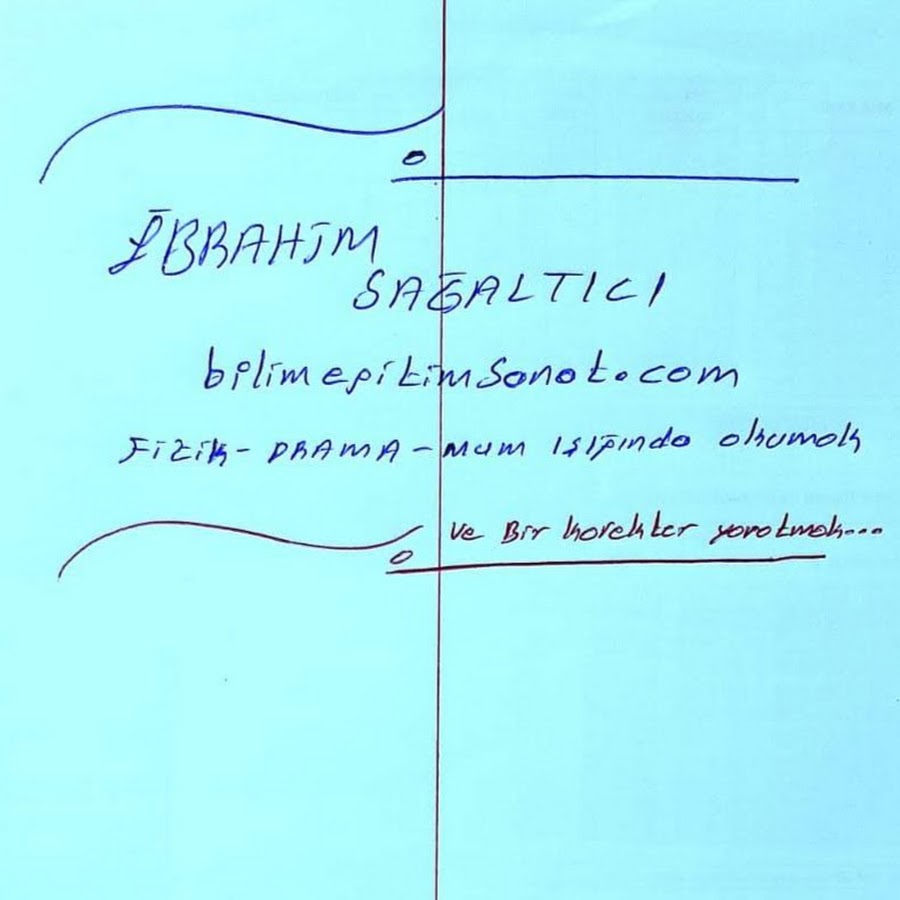 İBRAHİM
SAĞALTICI
bilimegitimsanat.com
Fizik - DRAMA - mum ışığında okumak
ve Bir karekter yaratmak...